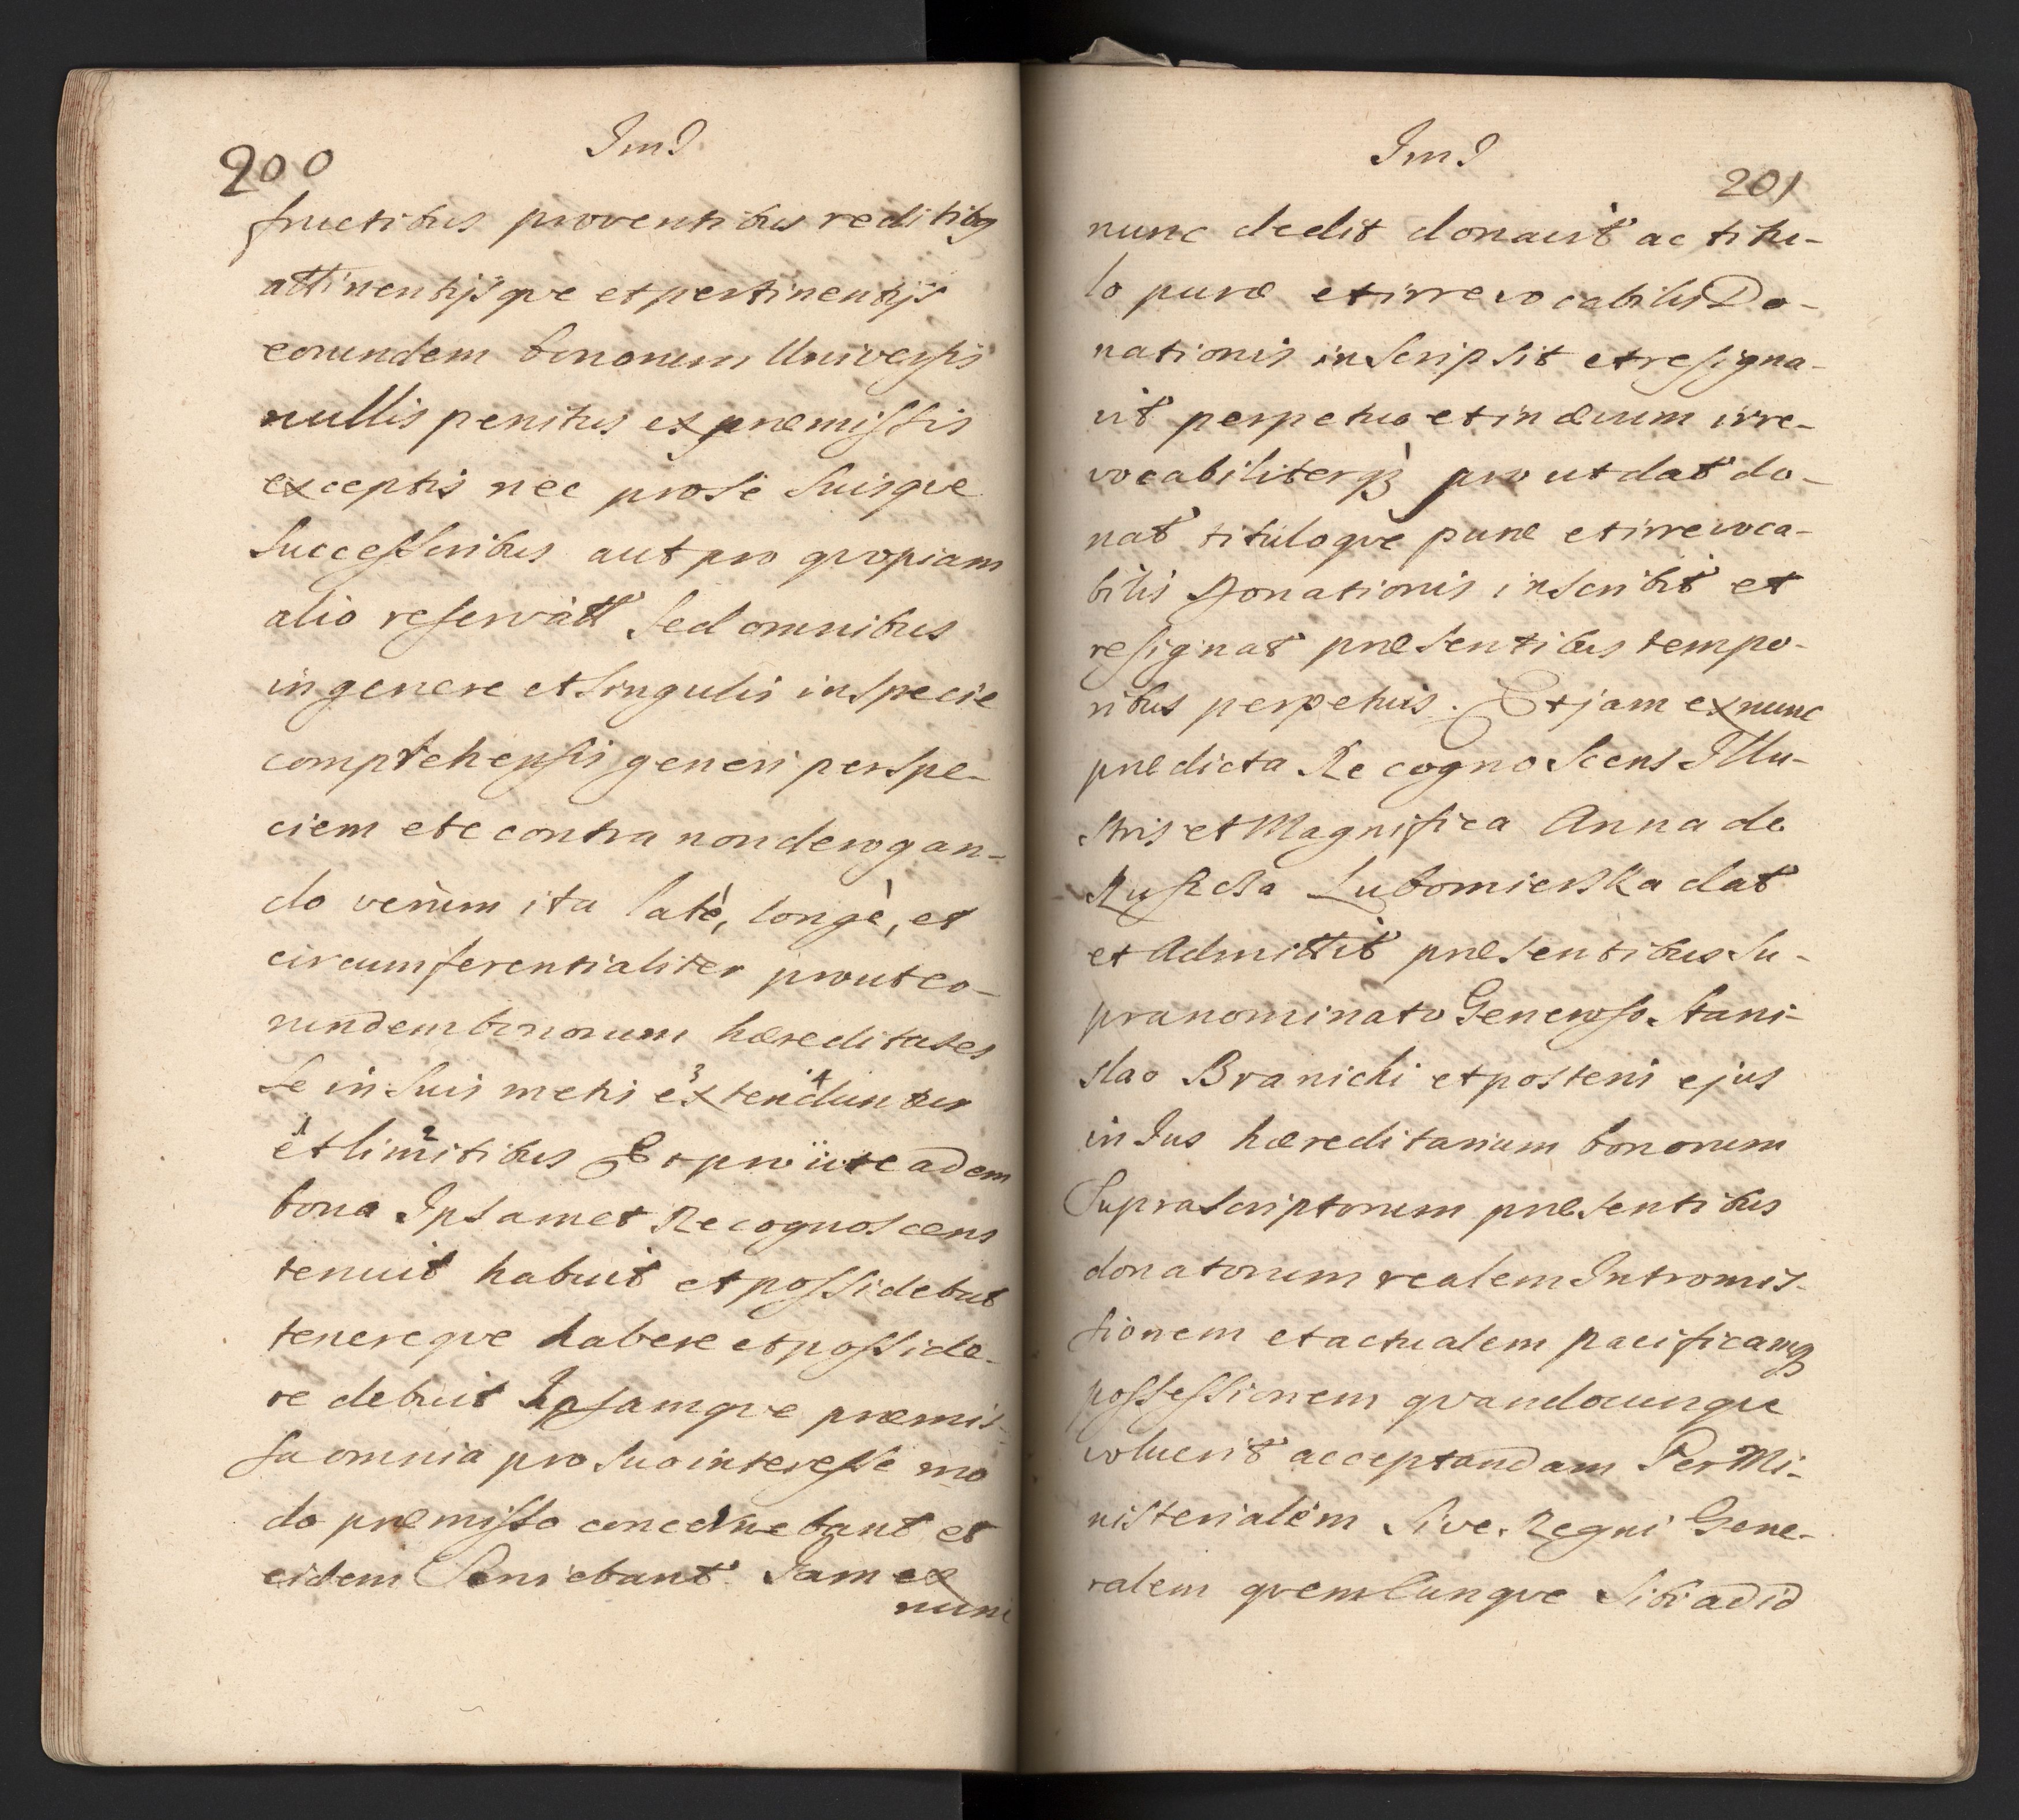 200
JmJ
fructibus proventibus reditibq
attinentijsqve et pertinentijs
eorundem bonorum Universis
nullis penitus ex præmissis
exceptis nec pro se suisqve
successoribus aut pro qvopiam
alio reservatt sed omnibus
in genere et singulis in specie
comprehensis generi per spe-
ciem et e contra non derogan-
do verùm ita latè, longè, et
circumferentialiter prout eo-
rundem bonorum hæreditates
se in suis metis 3 extenduntur 4
1 et limitibus 2 Et prout eadem
bona Ipsamet Recognoscens
tenuit habuit et possidebat
tenereqve habere et posside-
re debuit Ipsamqve præmis-
sa omnia pro suo interesse mo
do præmisso concernebant et
eidem serviebant. Jam ex
nunc
JmJ
201
nunc dedit donavit ac titu-
lo puræ et irrevocabilis Do-
nationis inscripsit et resigna-
vit perpetuo et in ævum irre-
vocabiliterqȝ prout dat do-
nat tituloqve puræ et irrevoca-
bilis Donationis inscribit et
resignat præsentibus tempo-
ribus perpetuis. Et jam ex nunc
prædicta Recognoscens Illu-
stris et Magnifica Anna de
Lubomierska dat
et Admittit præsentibus su-
pranominato Generoso Stani-
slao Branicki et posteris ejus
in Jus hæreditarium bonorum
Suprascriptorum præsentibus
donatorum realem Intromis-
sionem et actualem pacificamqȝ
possessionem qvandocunqve
voluerit acceptandam Per Mi-
nisterialem sive Regni Gene-
ralem qvemCunqve sibi ad id